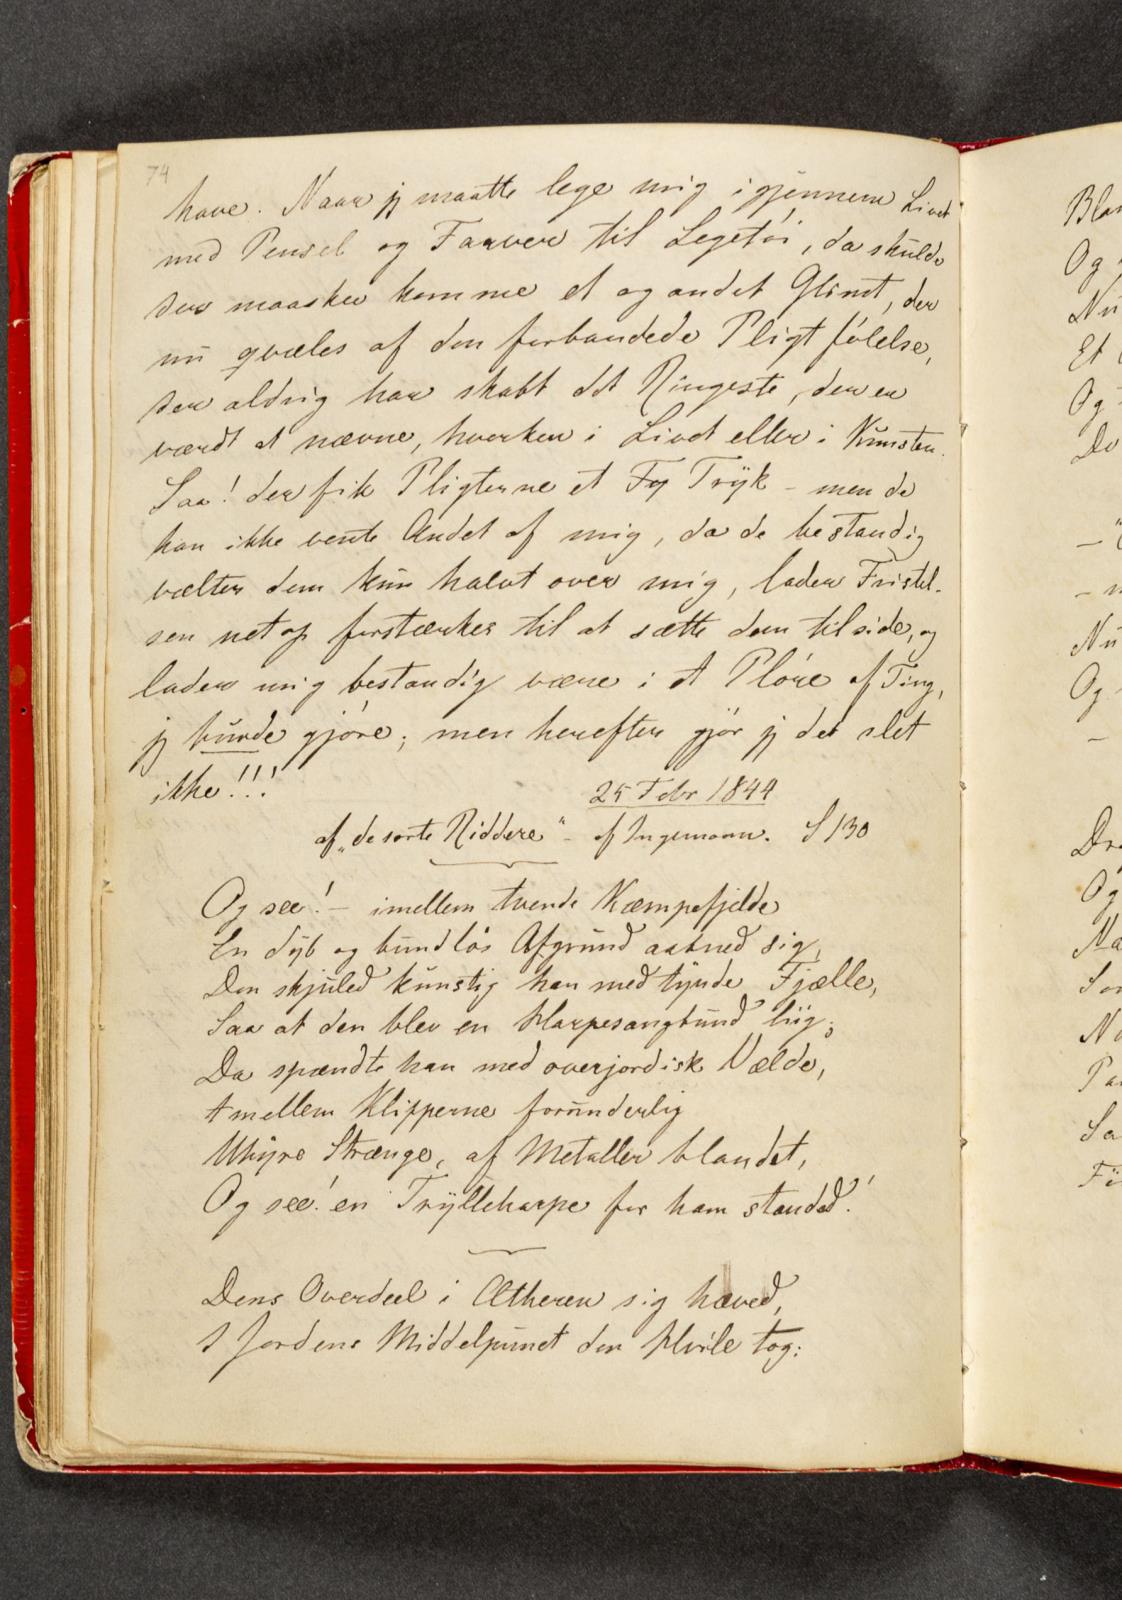 74
have. Naar jeg maatte lege mig igjennem Livet
med Pensel og Farver til Legetöi, da skulde
der maaskee komme et og andet Glimt, der
nu qvæles af den forbandede Pligtfölelse,
der aldrig har skabt det Ringeste, der er
værdt at nævne, hverken i Livet eller i Kunsten.
Saa! der fik Pligterne et Tryk – men de
kan ikke vente Andet af mig, da de bestandig
vælter dem kun halvt over mig, lader Fristel-
sen netop forstærkes til at sætte dem tilside, og
lader mig bestandig være i et Plöre af Ting,
jeg burde gjöre; men herefter gjör jeg det slet
ikke!!!
25 Febr 1844
af „de sorte Riddere" – af Ingemann. S 130
Og see! – imellem tvende Kæmpefjelde
En dyb og bundlös Afgrund aabned sig,
Den skjuled kunstig han med tynde Fjælle,
Saa at den blev en Harpesangbund liig;
Da spændte han med overjordisk Vælde,
Imellem Klipperne forunderlig
Uhyre Strænge, af Metaller blandet,
Og see! en Trylleharpe for ham standed!
Dens Overdeel i Ætheren sig hæved,
I Jordens Middelpunct den Hvile tog:
Og
Nu
Et
Og
Nu
Og